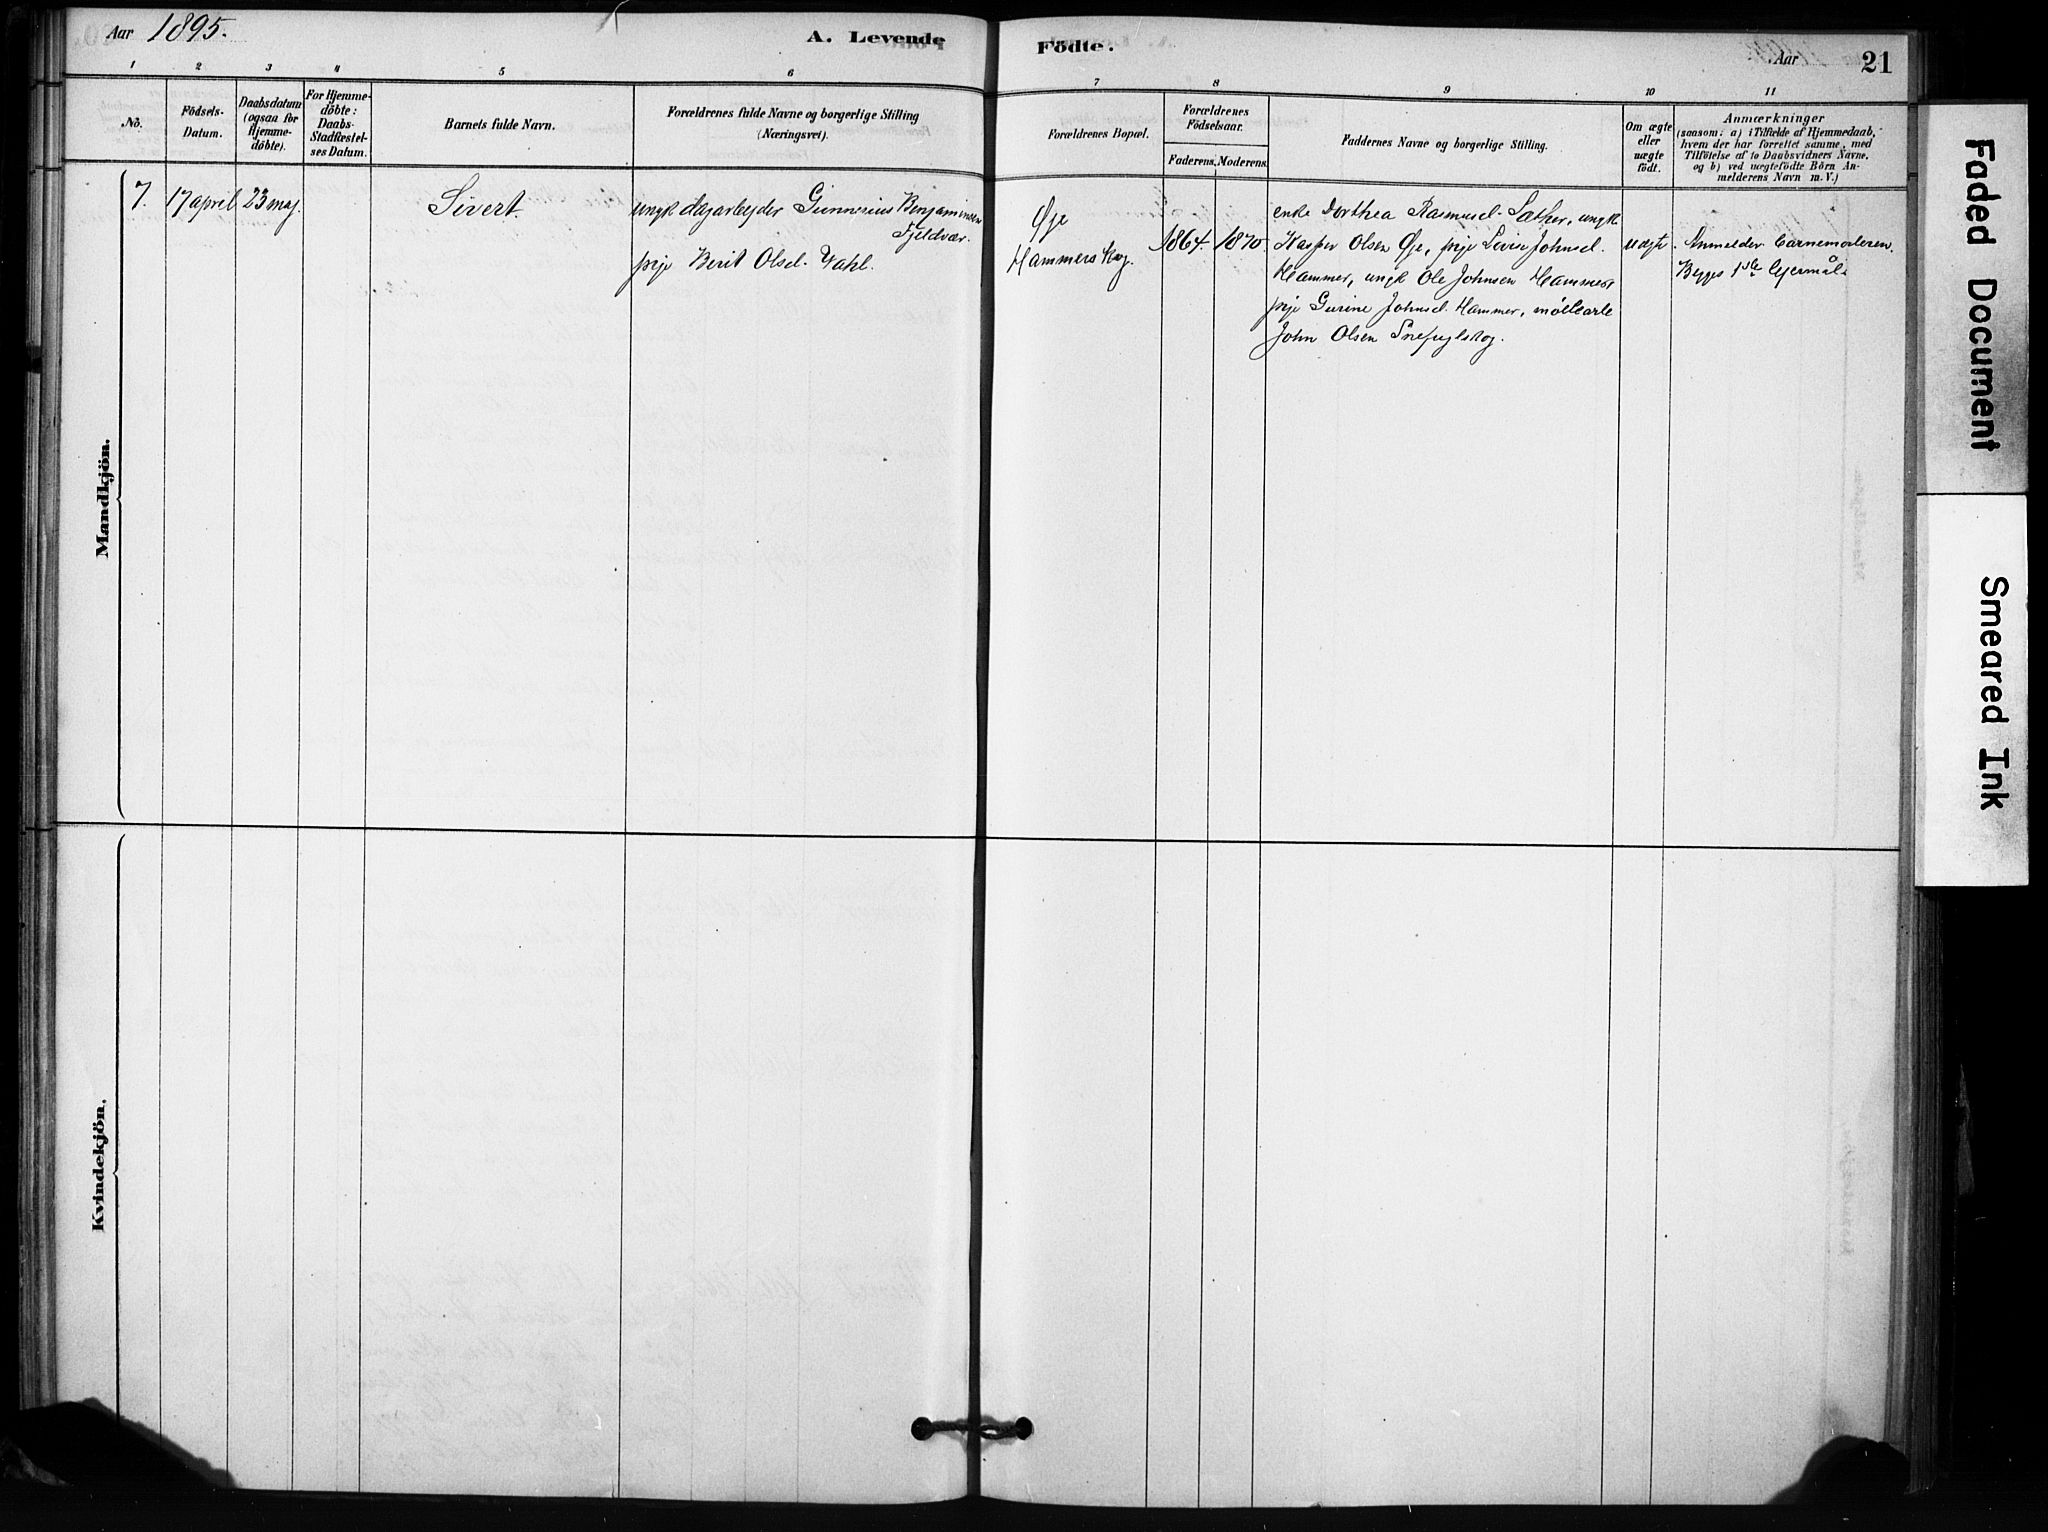 Aar 1895.
A. Levende
Födte.
Aar
21
1
2
3
4
5
6
7
8
9
10
11
No.
Födsels-
Datum.
Daabsdatum
(ogsaa for
Hjemme-
döbte).
For Hjemme-
döbte:
Daabs-
Stadfæstel-
ses Datum.
Barnets fulde Navn.
Forældrenes fulde Navne og borgerlige Stilling
(Næringsvei).
Forældrenes Bopæl.
Forældrenes
Födselsaar.
Faderens.
Moderens.
Faddernes Navne og borgerlige Stilling.
Om ægte
eller
uægte
födt.
Anmærkninger
(saasom: a) i Tilfælde af Hjemmedaab,
hvem der har forrettet samme, med
Tilföielse af to Daabsvidners Navne,
og b) ved uægtefödte Börn An-
melderens Navn m. V.)
Mandkjön.
7.
17 april
23 maj
Sivert
ungk dagarbejder Gunnerius Benjaminsen
Fjeldvær.
pige Berit Olsd. Vahl.
Øje
Hammerskog.
1864.
1870.
enke Dorthea Rasmusd. Sæther, ungk
Kasper Olsen Øje, pige Lovise Johnsd.
Hammer, ungk Ole Johnsen Hammer
pige Gurine Johnsd. Hammer,
John Olsen Snefuglskog.
uægte
Anmelder barnemoderen.
Begges 1ste lejermål.
Kvindekjön.
Faded Document
Smeared Ink